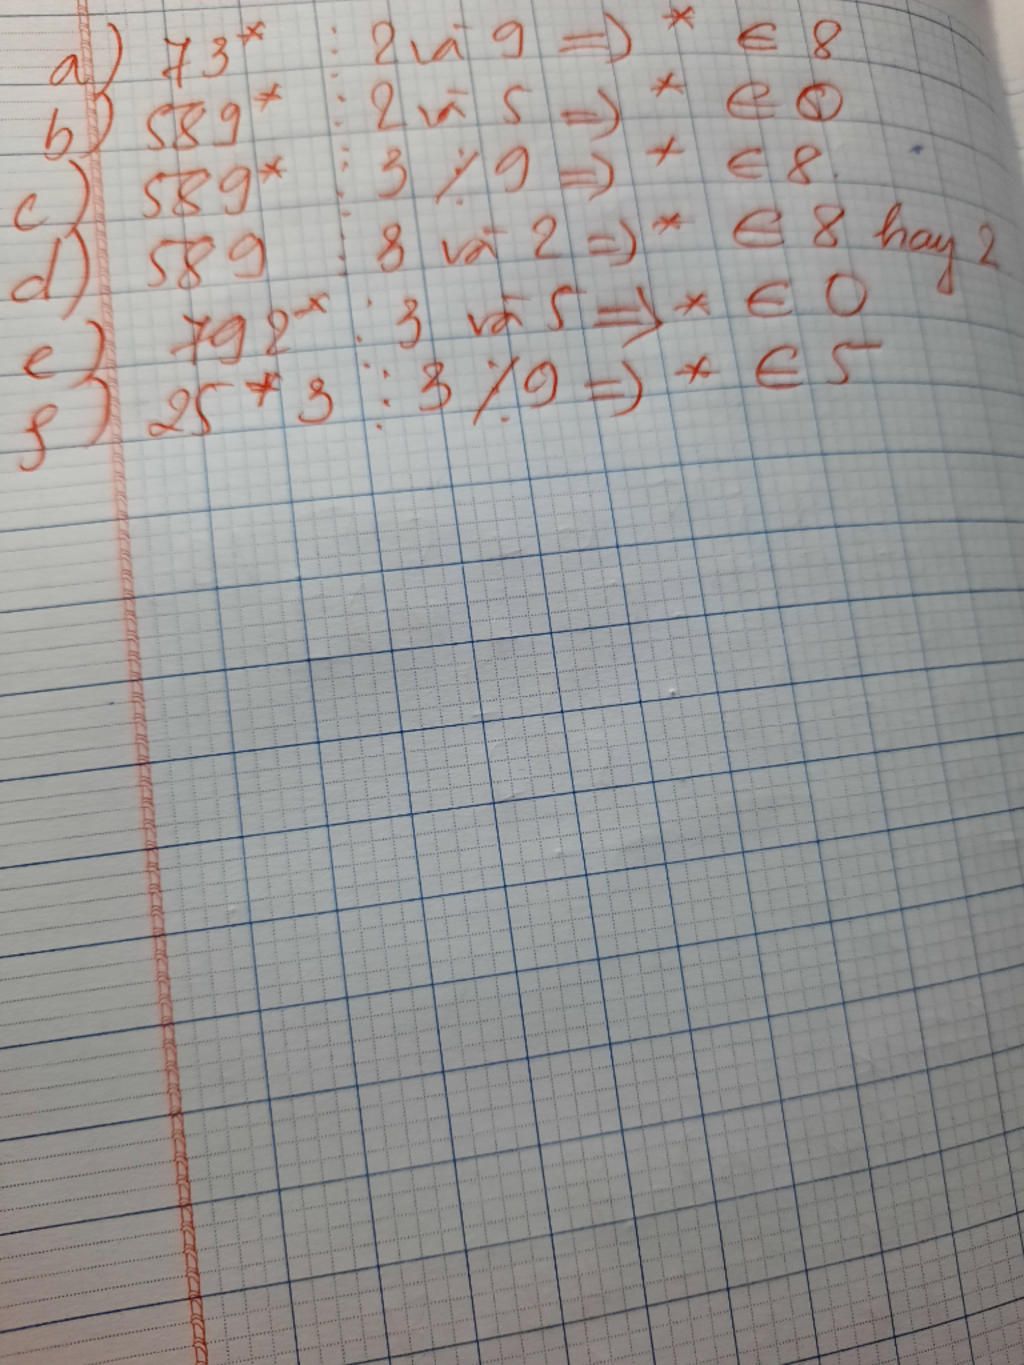 a) 73* ⋮ 2 và 9 => * ∈ 8
b) 589* ⋮ 2 và 5 => * ∈ 0
c) 589* ⋮ 3 ⋮̸ 9 => * ∈ 8.
d) 589 ⋮ 3 và 2 => * ∈ 8 hay 2
e) 792* ⋮ 3 và 5 => * ∈ 0
f) 25*3 ⋮ 3 ⋮̸ 9 => * ∈ 5